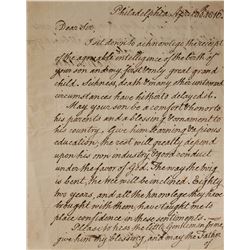 Philadelphia, April 18th 1816.
Dear Sir.
I sit down to acknowledge the receipt
of the agreeable intelligence of the birth of
your son and my first only great grand
child. Sickness, death & many other untoward
circumstances have hitherto delayed it.
May your son be a comfort & honor to
his parents and a blessing & ornament to
his country. Give him learning & pious
education, the rest will greatly depend
upon his own industry & good conduct
under the favor of God. The way the twig
is bent, the tree will be inclined. Eighty
two years, and all the knowledge they have
brought with them, have taught me to
place confidence in these sentiments.
Please to kiss the little Gentleman for me,
give him thy blessing, and may the Father